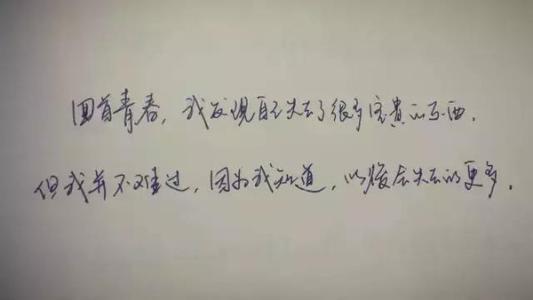 回首青春，我发现自己失去了很多宝贵的东西。
但我并不难过，因为我知道，以后会失去的更多。